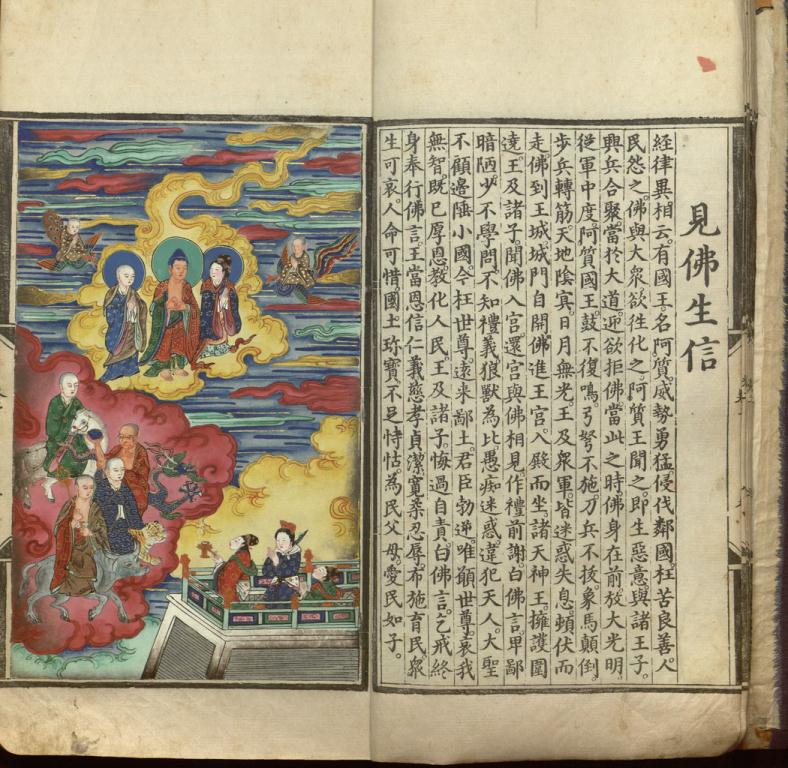 見佛生信
經律異相云。有國王。名阿質。威勢勇猛。侵伐鄰國。枉苦良善人
民。怨之。佛與大衆。欲往化之。阿質王聞之。即生惡意。與諸王子。
興兵合聚。當於大道。迎欲拒佛。當此之時。佛身在前。放大光明。
從軍中度。阿質國王。鼓不復鳴。弓弩不施。刀兵不拔。象馬顛倒。
步兵轉筋。天地陰冥。日月無光。王及衆軍。皆迷惑失息。頓伏而
走。佛到王城。城門自開。佛進王宮。入殿而坐。諸天神王。擁護圍
遶。王及諸子。聞佛入宮。還宮與佛相見。作禮前謝。白佛言。卑鄙
暗陋。少不學問。不知禮義。狼獸為比。愚癡迷惑。違犯天人。大聖
不顧邊陲小國。今枉世尊。遠来鄙土。君臣勃逆。唯願世尊。哀我
無智。既已厚恩。教化人民。王及諸子。悔過自責。白佛言。乞戒終
身。奉行佛言。王當恩信仁義。慈孝貞潔。寬柔忍辱。布施育民。衆
生可哀。人命可惜。國土珎寶。不足恃怙。為民父母。愛民如子。